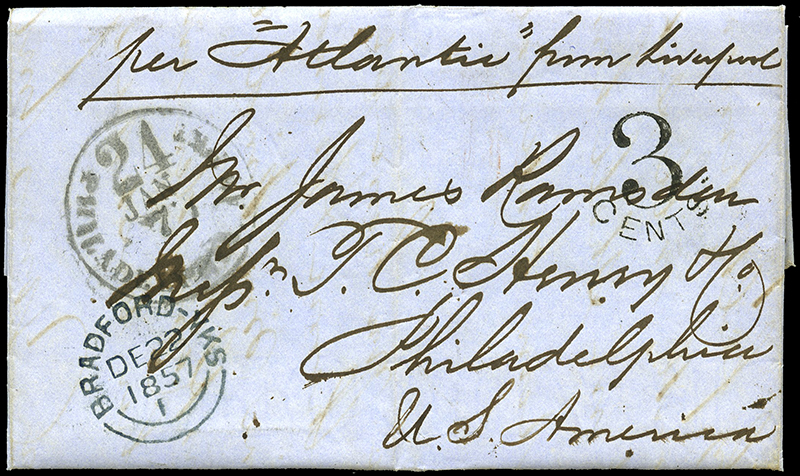 per "Atlantic" from Liverpool
24
JAN
7
PHILADE
3
CENTS
Mr. James Ramsden
Messrs. T. C. Henry & Co.
Philadelphia
U.S. America
BRADFORD-YKS
DE 22
1857
1